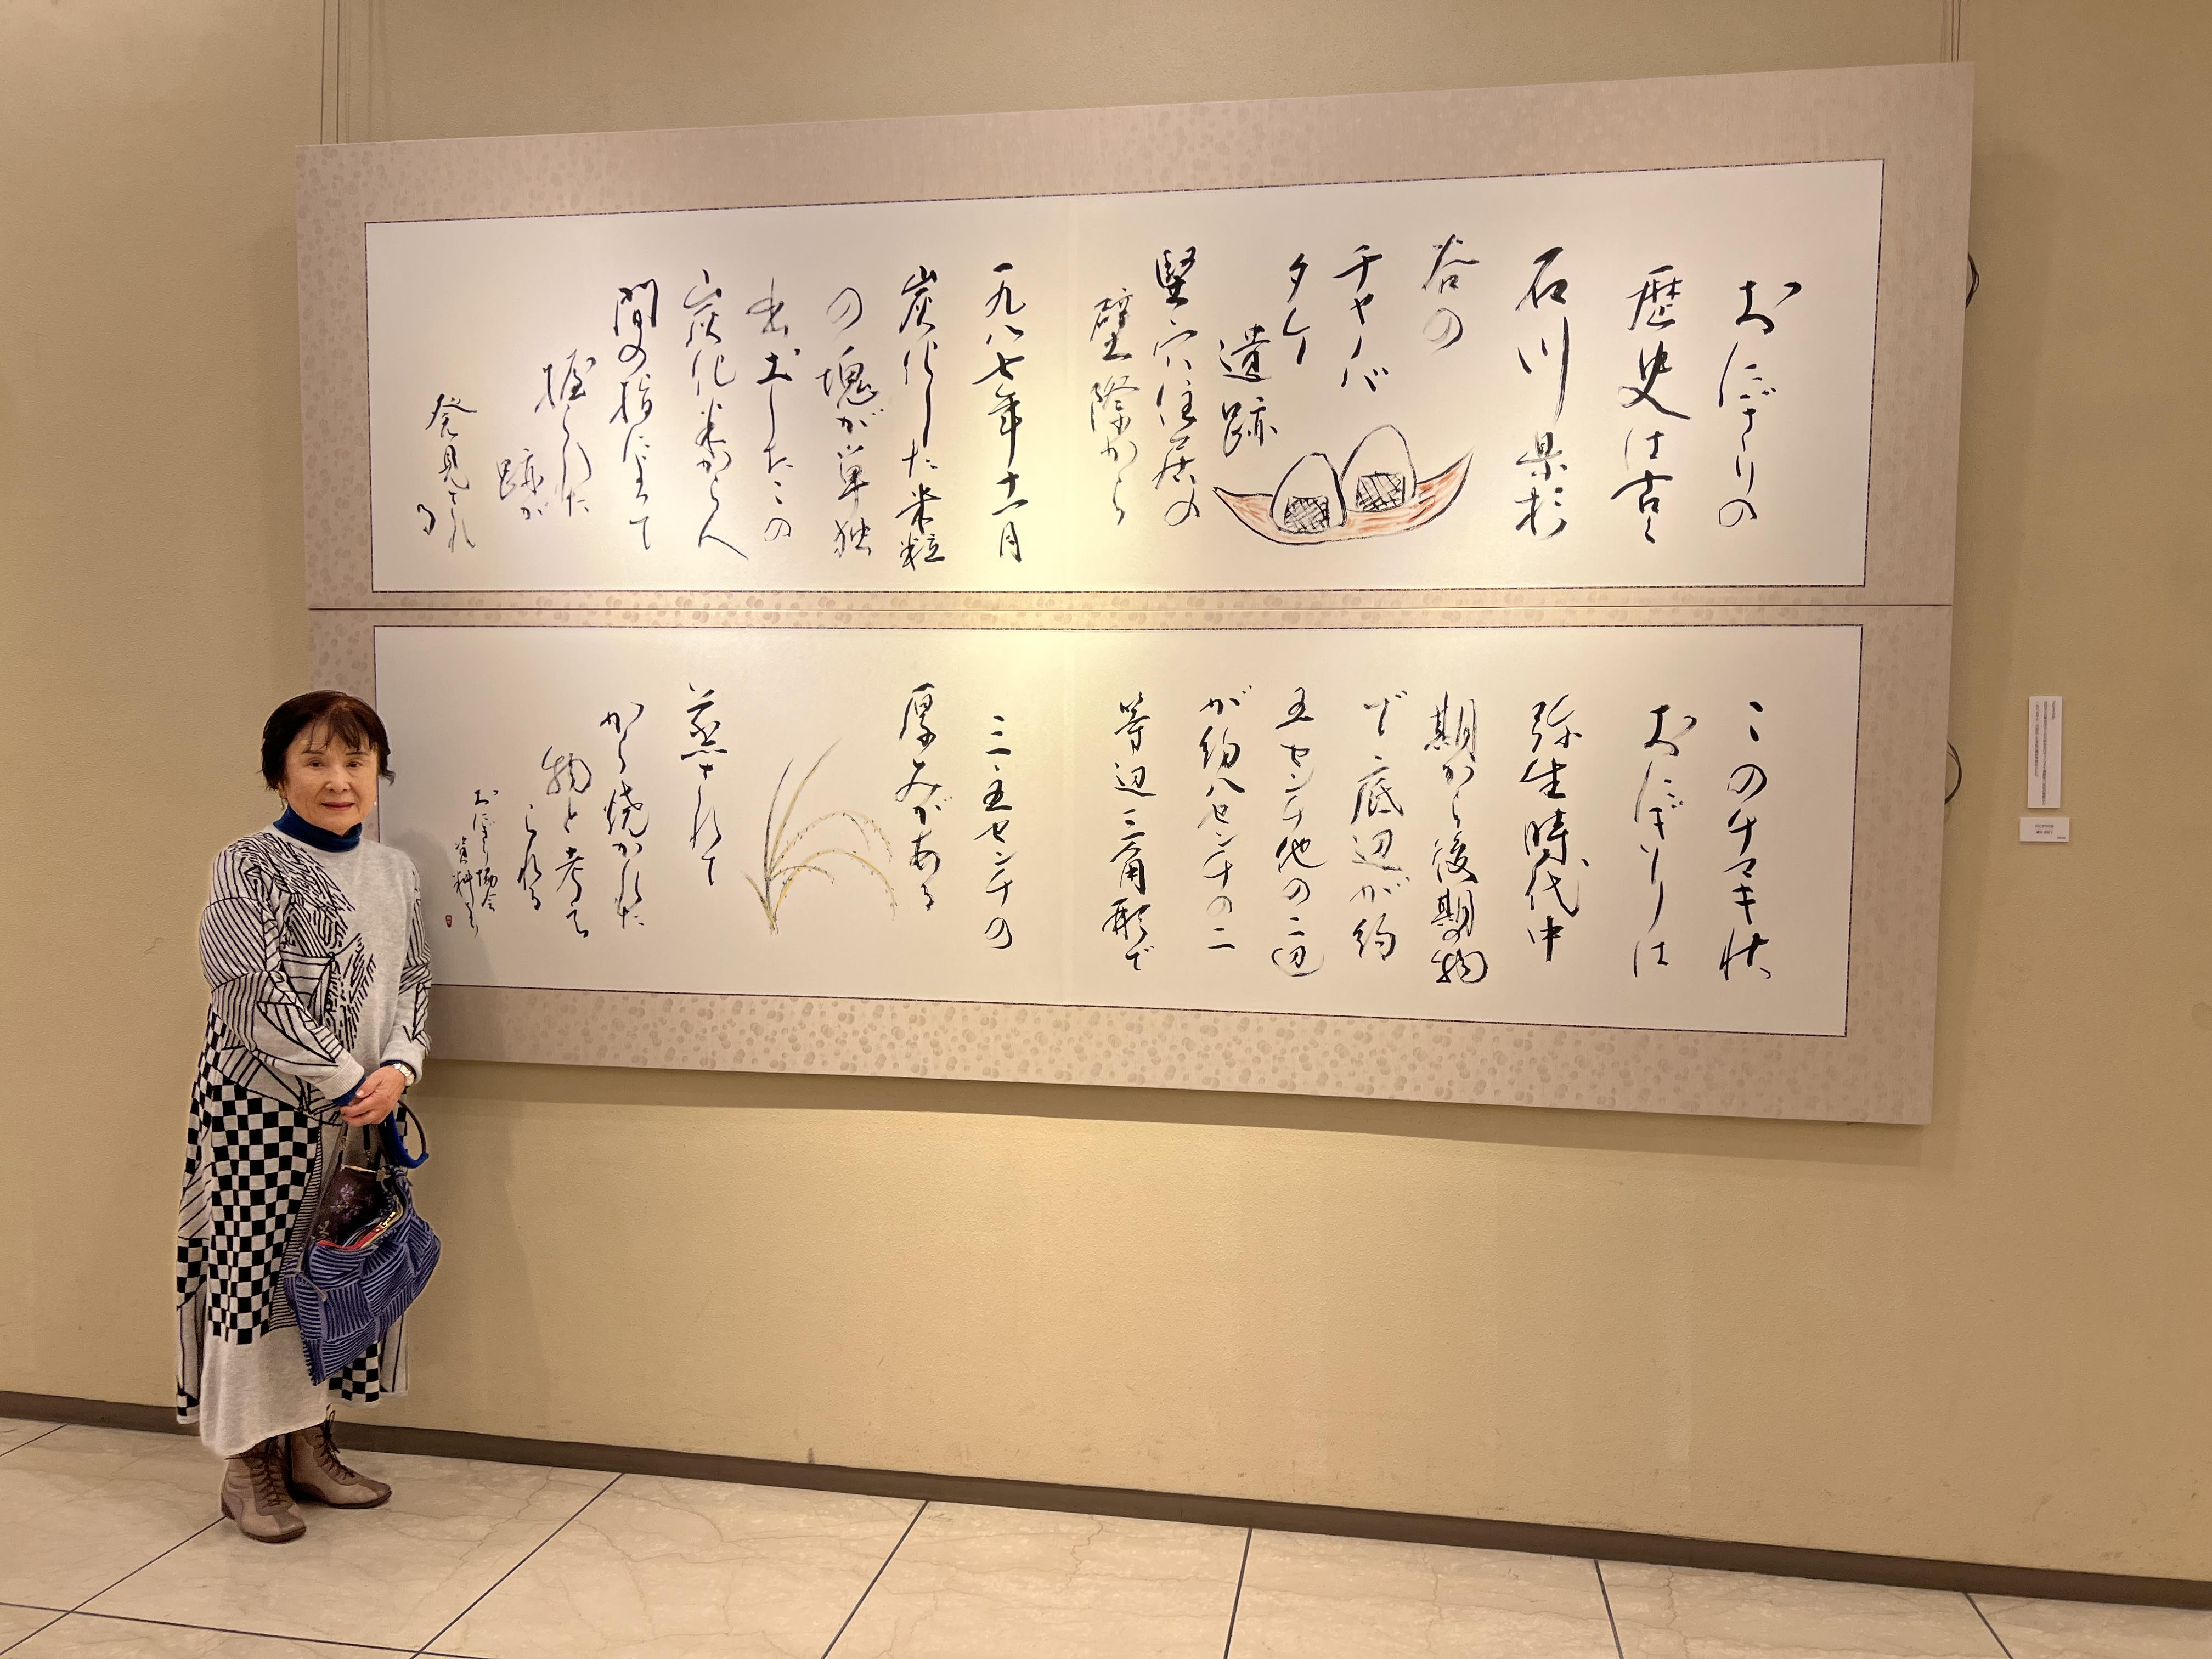 おにぎりの
歴史は古く
石川県杉
谷の
チャノバ
タケ
遺跡
竪穴住居の
壁際から
一九八七年十一月
炭化した米粒
の塊が単独
出土したこの
炭化米から人
間の指によって
握られた
跡が
発見され
る
このチマキ状
おにぎりは
弥生時代中
期から後期の物
で底辺が約
五センチ他の二辺
が約八センチの二
等辺三角形で
三・五センチの
厚みがある
蒸されて
から焼かれた
物と考え
られる
おにぎり協会
資料より